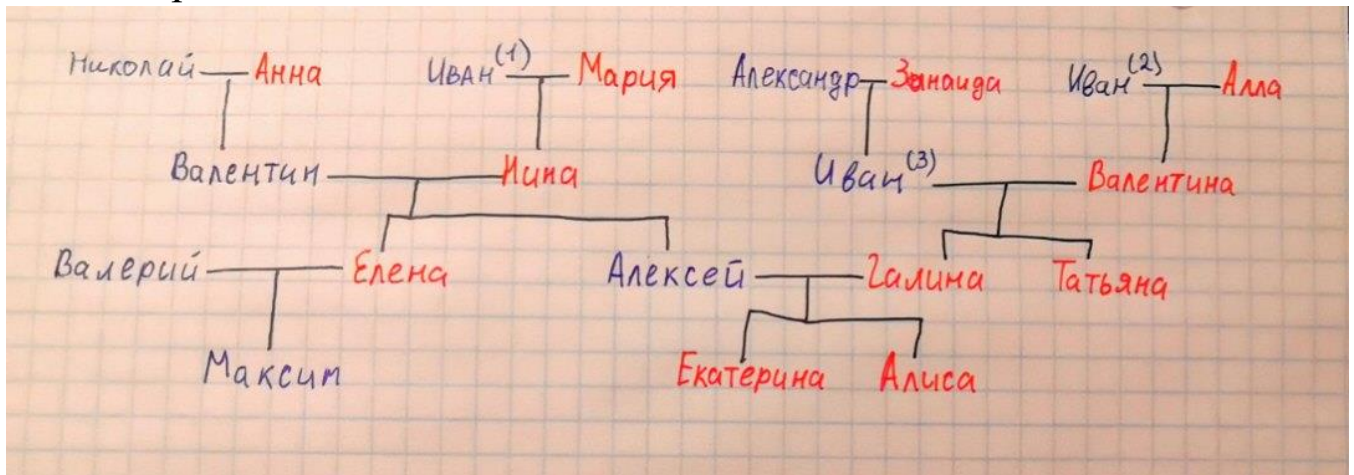 Николай Анна Иван (1) Мария Александр Зинаида Иван (2) Алла
Валентин Нина Иван (3) Валентина
Валерий Елена Алексей Галина Татьяна
Максим Екатерина Алиса